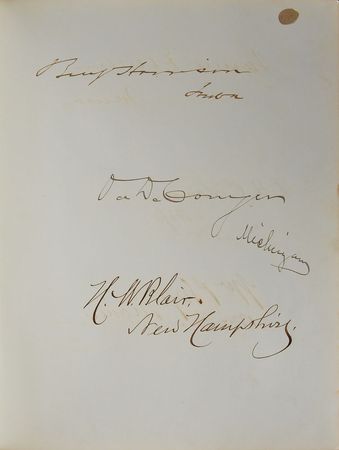 Benj Harrison
Inda
O. D. Conger
Michigan
H. W. Blair.
New Hampshire.